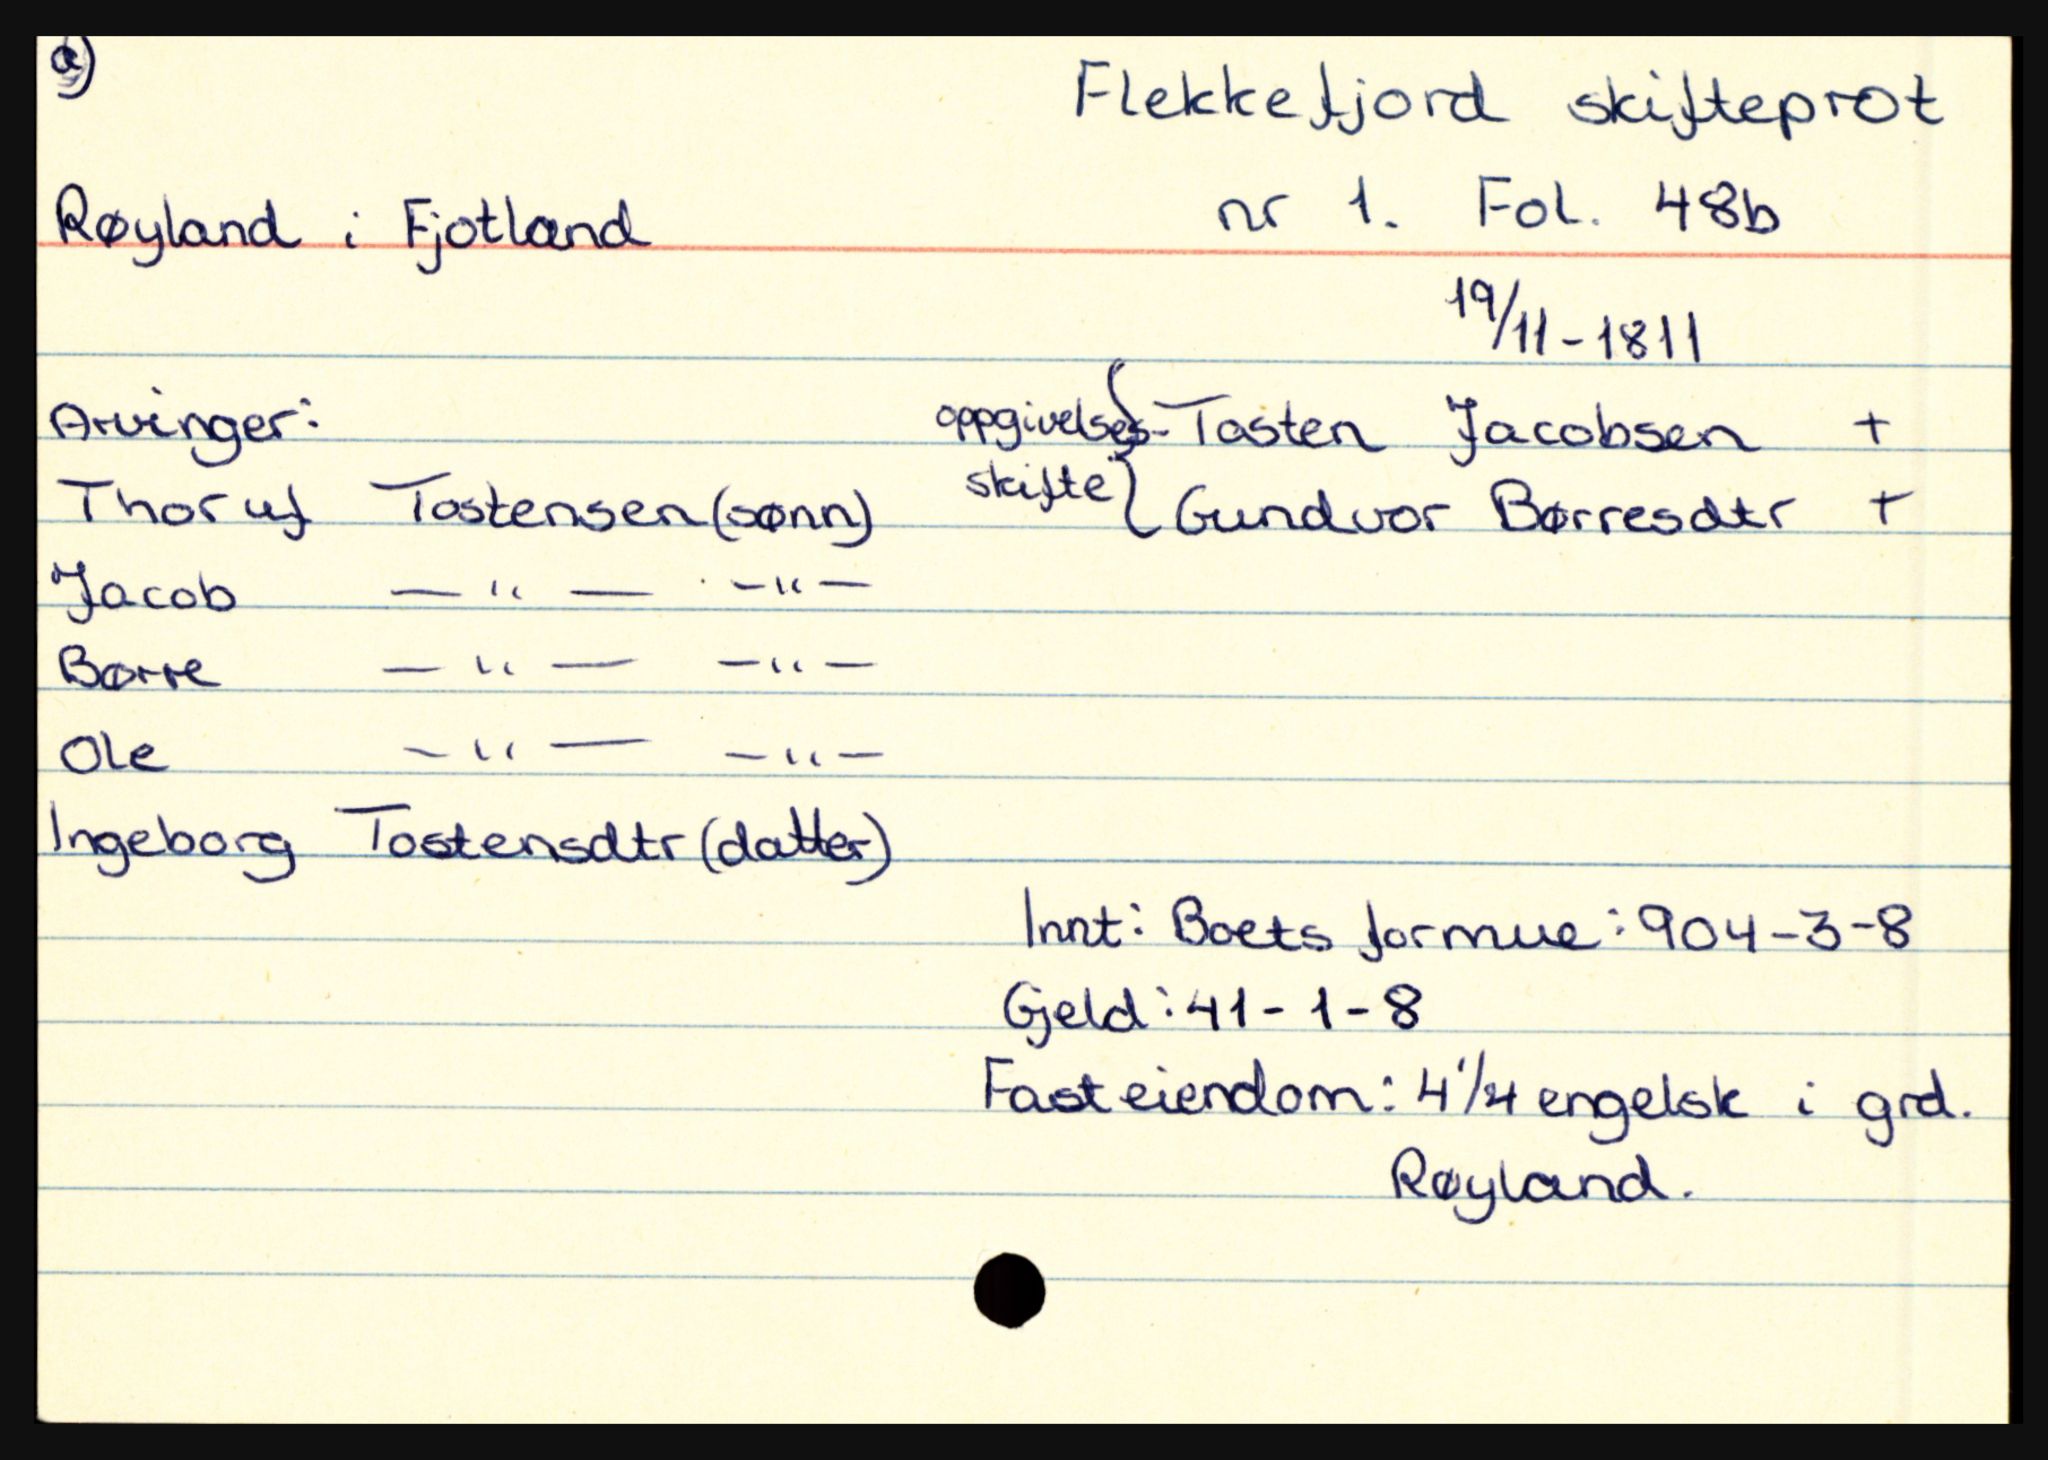 a)
Flekkefjord skifteprot
Røyland i Fjotland
nr 1. Fol. 48b
19/11-1811
Arvinger:
oppgivelses- Tosten Jacobsen +
Thoruf Tostensen (sønn)
skifte { Gundvor Børresdtr +
Jacob — " — - " -
Børre — " — - " -
Ole — " — - " -
Ingeborg Tostensdtr (datter)
Innt: Boets formue: 904-3-8
Gjeld: 41-1-8
Fast eiendom: 4 1/4 engelsk i grd.
Røyland.